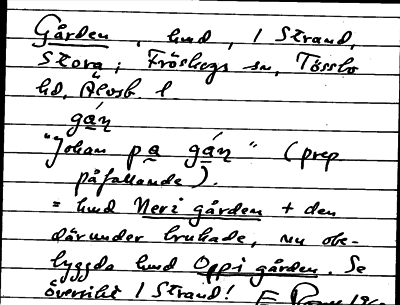 Gården, hmd, i Strand,
Stora; Fröskogs sn, Tössbo
hd, Älvsb. l.
gáɳ
"Johan pa gáɳ" (prep
påfallande).
= hmd Neri gården + den
därunder brukade, nu obe-
byggda hmd Oppi gården. Se
översikt i Strand!